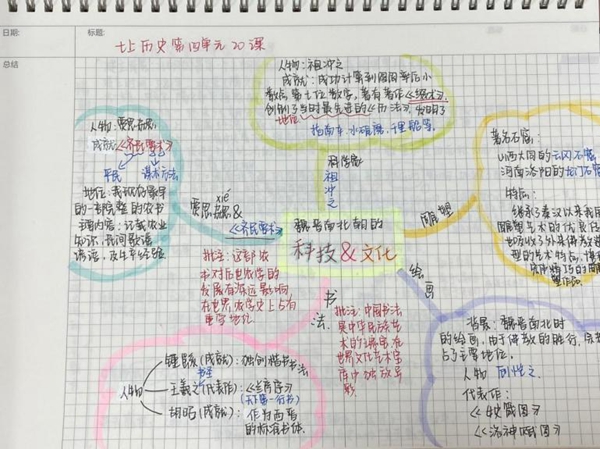 日期:
标题:
七上历史第四单元20课
总结
人物:祖冲之
成就:成功计算到圆周率后小
数点第七位数字,著有著作《缀术》,
创制了当时最先进的《历法》,发明了
地位:
指南车、水碓磨、千里船等。
科学家
祖
冲
之
人物:贾思勰
成就:《齐民要术》
平民
谋生方法
地位:我国现存最早
的一部完整的农书
主要内容:记载农业
知识,民间歌谣
谚语,及生产经验
xié
贾思勰&
《齐民要术》
批注:这部农
书对后世农学的
发展有深远影响,
在世界农学史上占有
重要地位
魏晋南北朝的
科技&文化
雕塑
著名石窟:
山西大同的云冈石窟
河南洛阳的龙门石窟
特点:
继承了秦汉以来我国
雕塑艺术的优良传
绘画
背景:魏晋南北时
的绘画,由于佛教的盛行,
占了主要地位。
人物
顾恺之
代表作:
《女箴图》
《洛神赋图》
书
法
批注:中国书法
是中华民族艺
术的瑰宝,在
世界文化艺术宝
库中独放异
彩
人物
钟繇(成就):独创楷书书法
书圣
王羲之(代表作):《兰亭序》
(天下第一行书)
胡昭(成就):作为西晋
的标准书体